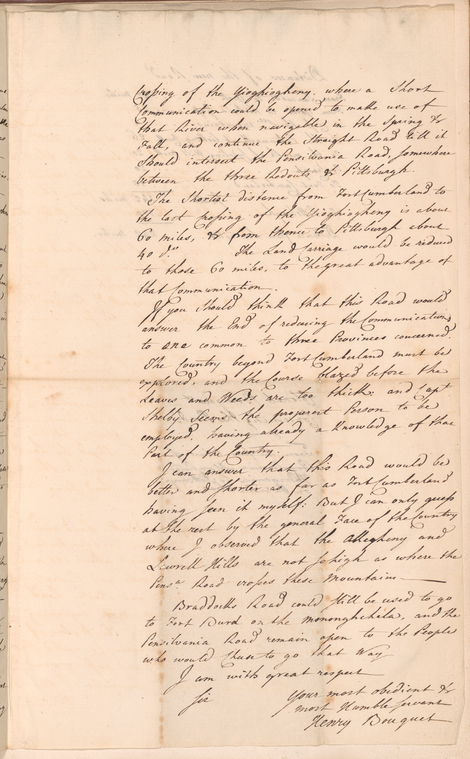 Crossing of the Yioghiogheny. where a Short
Communication could be opened to make use of
that River when navigable in the Spring &
Fall, and continue the Straight Road till it
Should intersect the Pensilvania Road, Somewhere
between the three Redouts & Pittsburgh.
The Shortest distance from Fort Cumberland to
the last Crossing of the Yioghiogheny is about
60 miles, & from thence to Pittsburgh about
40 do The Land Carriage would be reduced
to those 60 miles, to the great advantage of
that Communication.
If you Should think that this Road would
answer the End of reducing the Communications
to one common to three Provinces concerned.
The Country beyond Fort Cumberland must be
explored, and the Course blazed before the
Leaves and Weeds are too thick; and Capt
Shelby Seems the properest Person to be
employed, having already a Knowledge of that
Part of the Country.
I can answer that this Road would be
better and Shorter as far as Fort Cumberland
having Seen it myself: But I can only guess
at the rest by the general Face of the Country
where I observed that the Allegheny and
Lawrell Hills are not So high as where the
Pensa Road crosses these Mountains.
Braddocks Road could Still be used to go
to Fort Burd on the mononghehela, and the
Pensilvania Road remain open to the People
who would Chuse to go that Way
I am with great respect
Sir Your most obedient &
most Humble Servant
Henry Bouquet